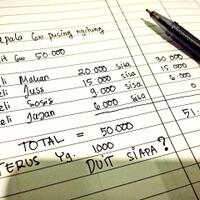 epala Gw pusing ngitung
it Gw 50.000
eli Makan 20.000 sisa 30.000
eli Juss 15.000 sisa 15.000
eli Sosis 9.000 sisa 6.000
eli Jajan 6.000 sisa
TOTAL = 50.000 51.
TERUS Yg. 1000 DUIT SIAPA?